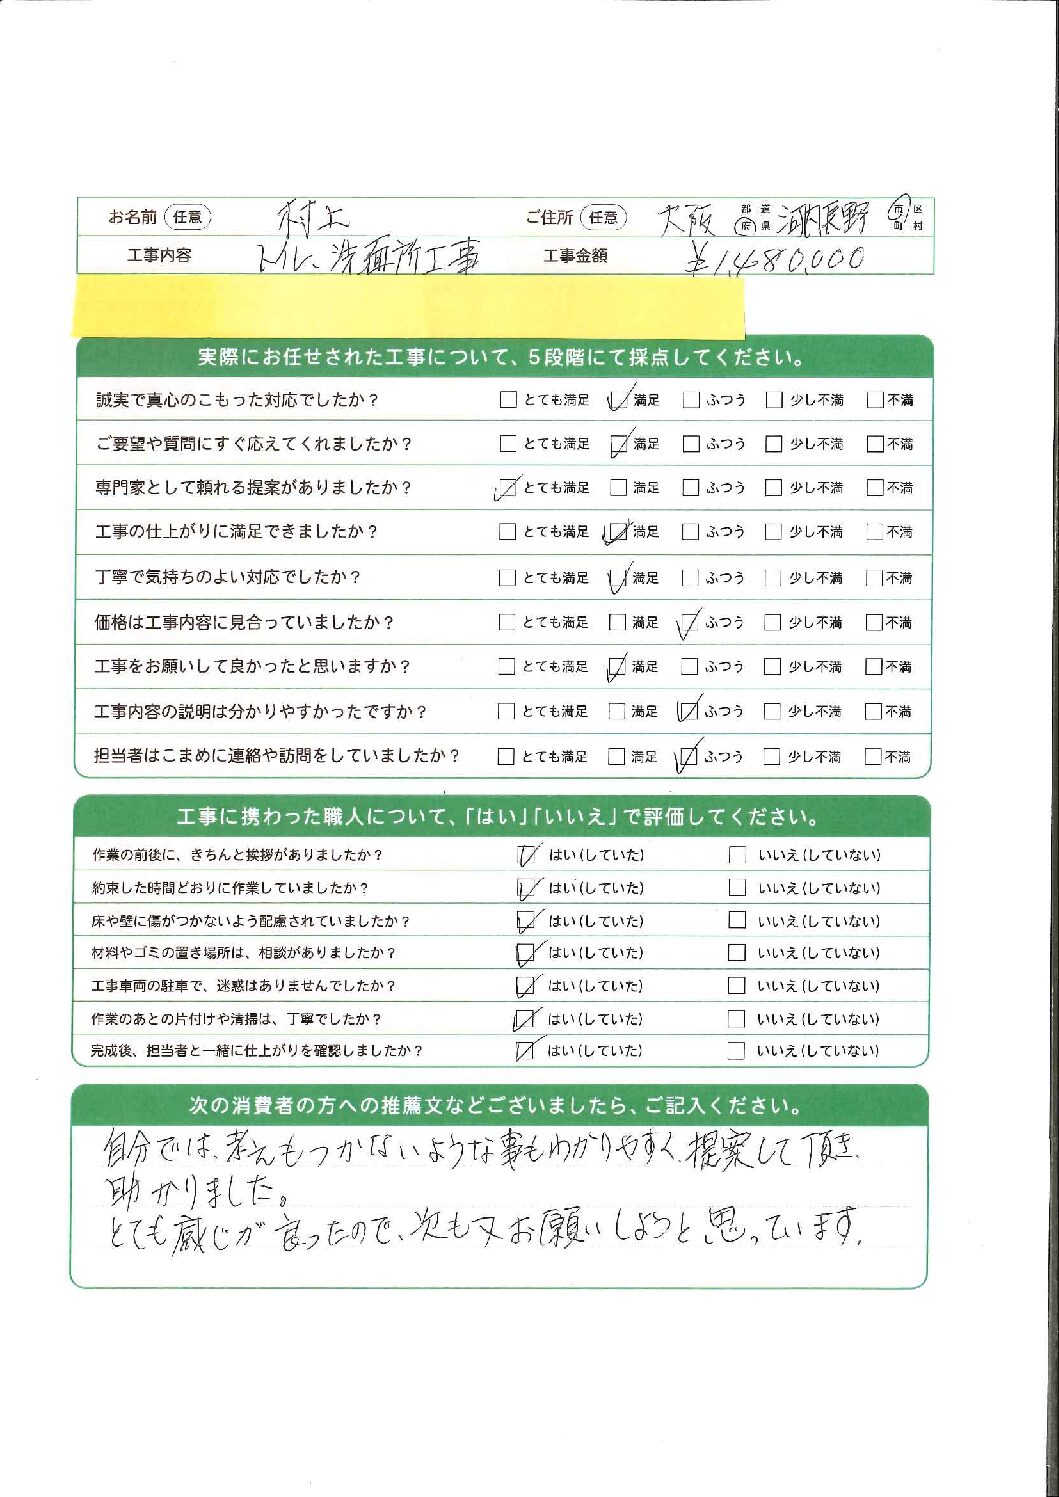 お名前 任意 村上 ご住所 任意 大阪 都道府県 河内長野 市区町村
工事内容 トイレ、洗面所工事 工事金額 ¥1,480,000
実際にお任せされた工事について、5段階にて採点してください。
誠実で真心のこもった対応でしたか? □とても満足 ☑満足 □ふつう □少し不満 □不満
ご要望や質問にすぐ応えてくれましたか? □とても満足 ☑満足 □ふつう □少し不満 □不満
専門家として頼れる提案がありましたか? ☑とても満足 □満足 □ふつう □少し不満 □不満
工事の仕上がりに満足できましたか? □とても満足 ☑満足 □ふつう □少し不満 □不満
丁寧で気持ちのよい対応でしたか? □とても満足 ☑満足 □ふつう □少し不満 □不満
価格は工事内容に見合っていましたか? □とても満足 □満足 ☑ふつう □少し不満 □不満
工事をお願いして良かったと思いますか? □とても満足 ☑満足 □ふつう □少し不満 □不満
工事内容の説明は分かりやすかったですか? □とても満足 □満足 ☑ふつう □少し不満 □不満
担当者はこまめに連絡や訪問をしていましたか? □とても満足 □満足 ☑ふつう □少し不満 □不満
工事に携わった職人について、「はい」「いいえ」で評価してください。
作業の前後に、きちんと挨拶がありましたか? ☑はい(していた) □いいえ(していない)
約束した時間どおりに作業していましたか? ☑はい(していた) □いいえ(していない)
床や壁に傷がつかないよう配慮されていましたか? ☑はい(していた) □いいえ(していない)
材料やゴミの置き場所は、相談がありましたか? ☑はい(していた) □いいえ(していない)
工事車両の駐車で、迷惑はありませんでしたか? ☑はい(していた) □いいえ(していない)
作業のあとの片付けや清掃は、丁寧でしたか? ☑はい(していた) □いいえ(していない)
完成後、担当者と一緒に仕上がりを確認しましたか? ☑はい(していた) □いいえ(していない)
次の消費者の方への推薦文などございましたら、ご記入ください。
自分では、考えもつかないような事もわかりやすく、提案して頂き、
助かりました。
とても感じが良ったので、次も又お願いしようと思っています。